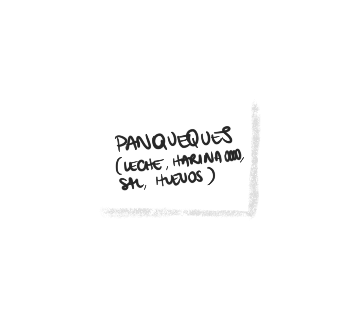 PANQUEQUES
(LECHE, HARINA 0000,
SAL, HUEVOS)